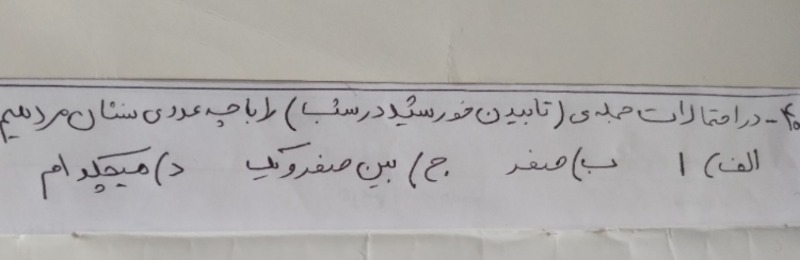 ۴۰- در احتمالات جمله ی (تابیدن خورشید در شب) را با چه عددی نشان می دهیم
الف) ۱ ب) صفر ج) بین صفر و یک د) هیچکدام